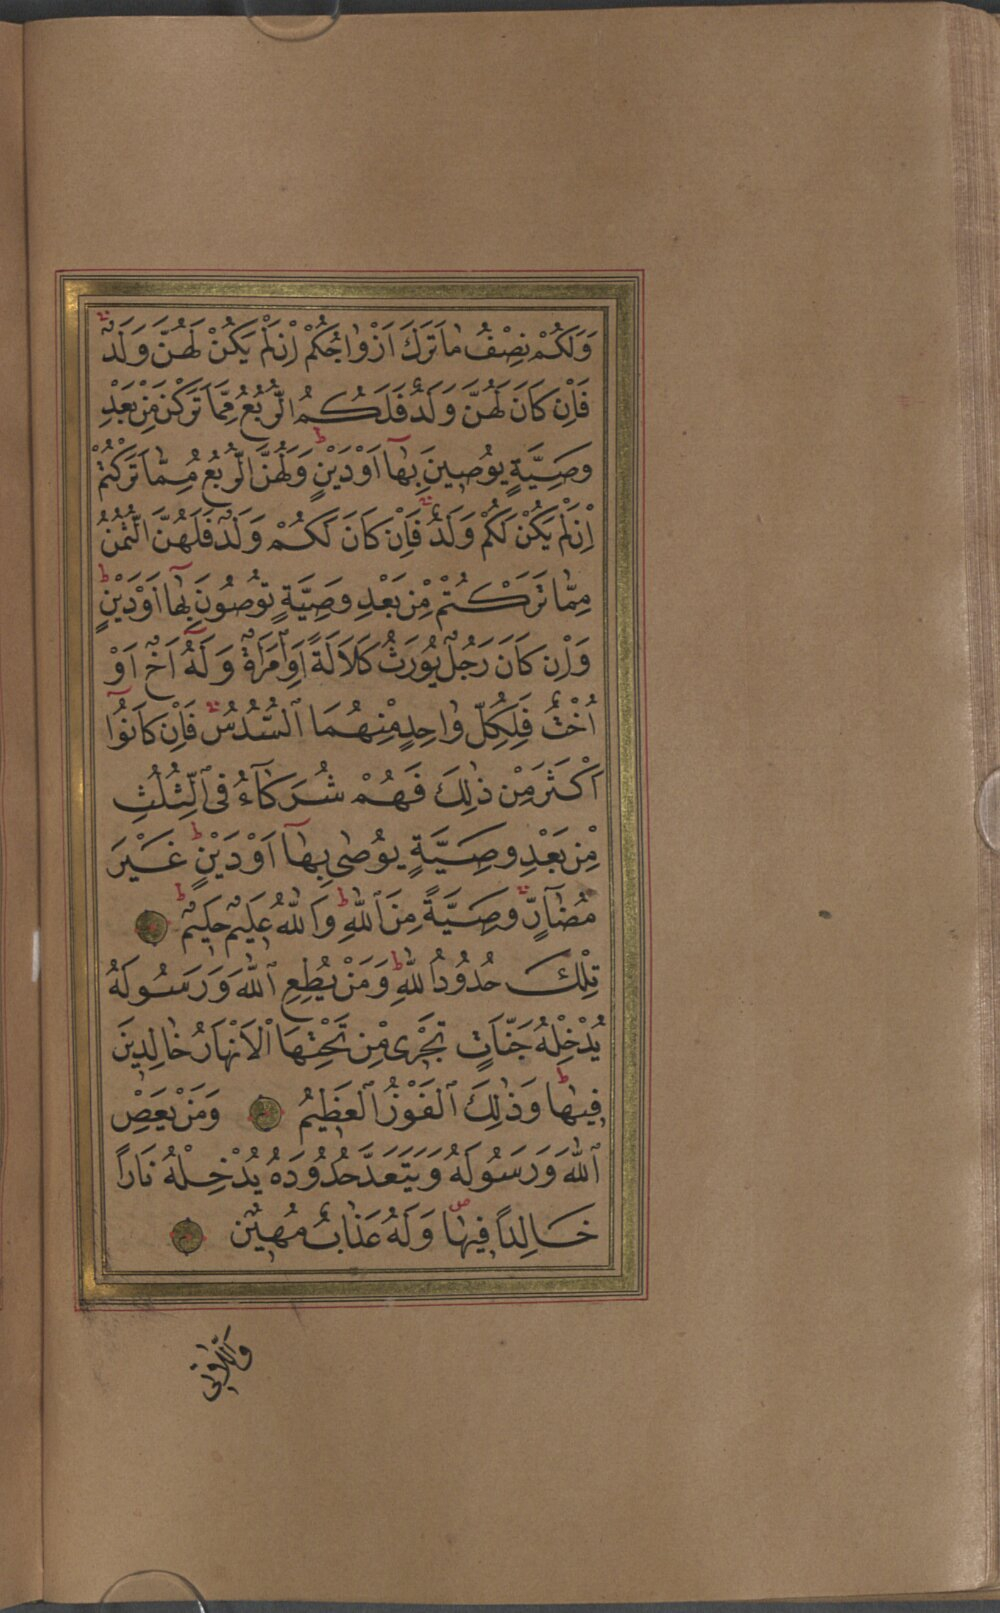 وَلَكُمْ نِصْفُ مَا تَرَكَ اَزْوَاجُكُمْ اِنْ لَمْ يَكُنْ لَهُنَّ وَلَدٌ
فَاِنْ كَانَ لَهُنَّ وَلَدٌ فَلَكُمُ الرُّبُعُ مِمَّا تَرَكْنَ مِنْ بَعْدِ
وَصِيَّةٍ يُوصِينَ بِهَٓا اَوْ دَيْنٍ وَلَهُنَّ الرُّبُعُ مِمَّا تَرَكْتُمْ
اِنْ لَمْ يَكُنْ لَكُمْ وَلَدٌ فَاِنْ كَانَ لَكُمْ وَلَدٌ فَلَهُنَّ الثُّمُنُ
مِمَّا تَرَكْتُمْ مِنْ بَعْدِ وَصِيَّةٍ تُوصُونَ بِهَٓا اَوْ دَيْنٍ
وَاِنْ كَانَ رَجُلٌ يُورَثُ كَلَالَةً اَوِ امْرَاَةٌ وَلَهُٓ اَخٌ اَوْ
اُخْتٌ فَلِكُلِّ وَاحِدٍ مِنْهُمَا السُّدُسُ فَاِنْ كَانُٓوا
اَكْثَرَ مِنْ ذٰلِكَ فَهُمْ شُرَكَٓاءُ فِى الثُّلُثِ
مِنْ بَعْدِ وَصِيَّةٍ يُوصٰى بِهَٓا اَوْ دَيْنٍ غَيْرَ
مُضَٓارٍّ وَصِيَّةً مِنَ اللّٰهِ وَاللّٰهُ عَلِيمٌ حَلِيمٌ
تِلْكَ حُدُودُ اللّٰهِ وَمَنْ يُطِعِ اللّٰهَ وَرَسُولَهُ
يُدْخِلْهُ جَنَّاتٍ تَجْرِى مِنْ تَحْتِهَا الْاَنْهَارُ خَالِدِينَ
فِيهَا وَذٰلِكَ الْفَوْزُ الْعَظِيمُ وَمَنْ يَعْصِ
اللّٰهَ وَرَسُولَهُ وَيَتَعَدَّ حُدُودَهُ يُدْخِلْهُ نَارًا
خَالِدًا فِيهَا وَلَهُ عَذَابٌ مُهِينٌ
وَالّٰتِى